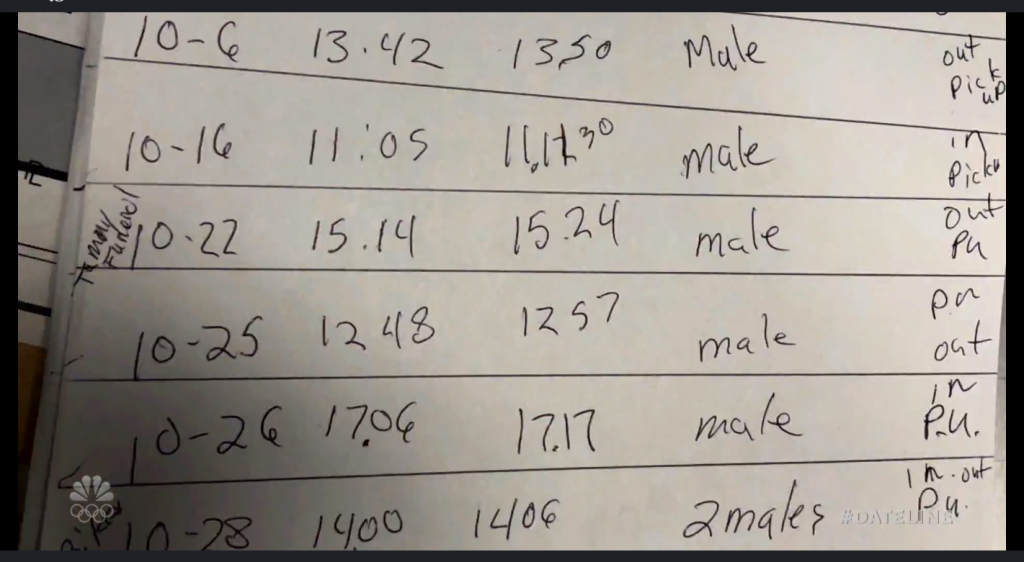 10-6 13.42 13.50 Male out Pick up
10-16 11:05 11.17 30 male in Picku
Tammy Funeral 10.22 15.14 15.24 male out Pu
10-25 12 48 12 57 male P.u out
10-26 17.06 17.17 male in P.U.
10-28 14.00 1406 2 males in-out Pu.
#DATELINE